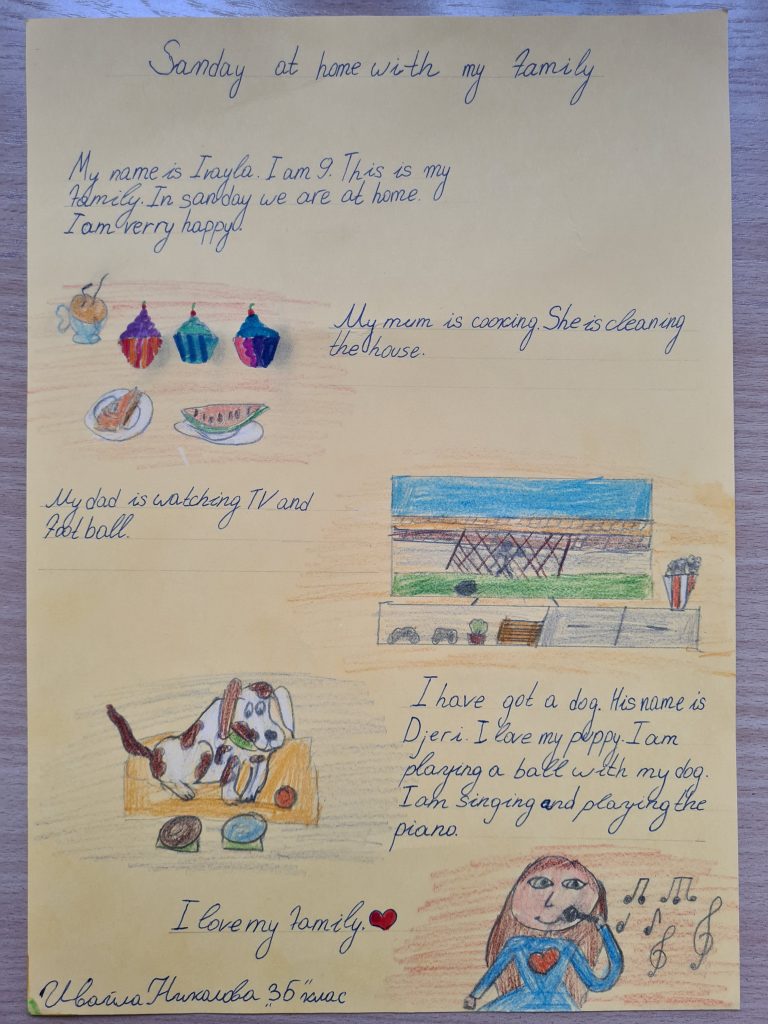 Sanday at home with my Family
My name is Ivayla. I am 9. This is my
Family. In sanday we are at home.
I am verry happy.
My mum is cooking. She is cleaning
the house.
My dad is watching TV and
Foot ball.
I have got a dog. His name is
Djeri. I love my puppy. I am
playing a ball with my dog.
I am singing and playing the
piano.
I love my Family.
Ивайла Николова „3б" клас